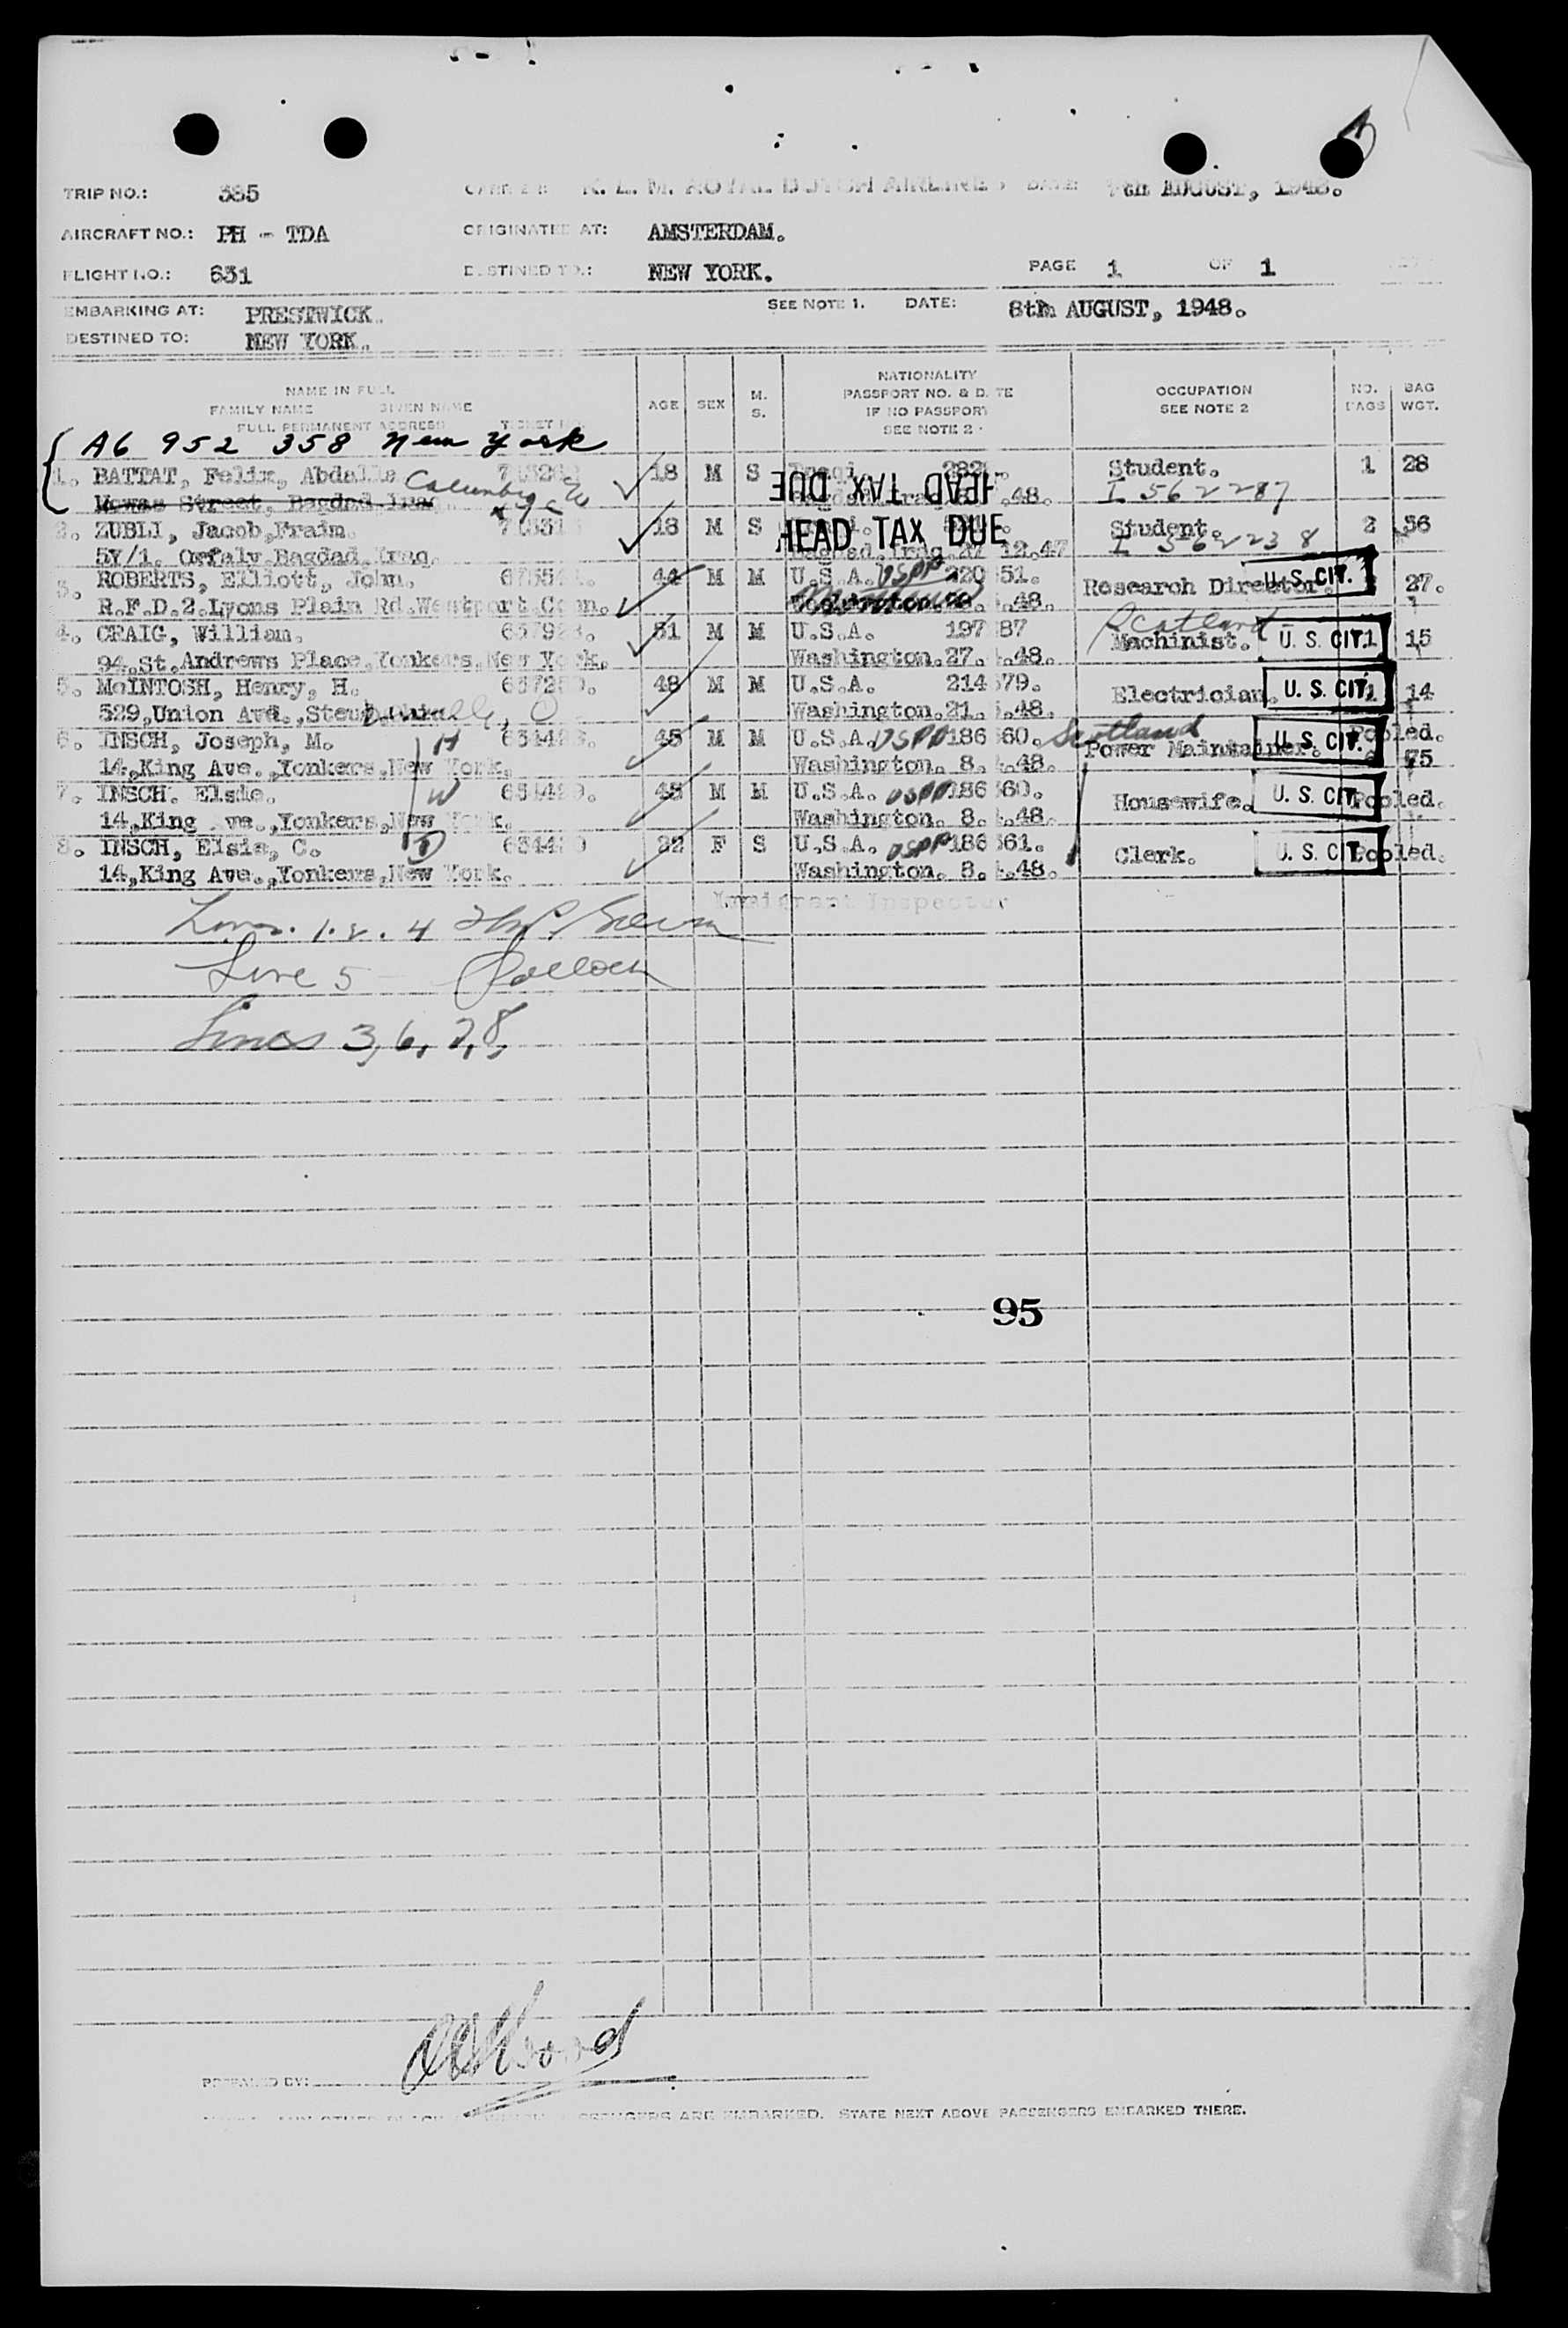 TRIP NO.: 385 CARRIER: K. L. M. ROYAL DUTCH AIRLINES DATE: 7th AUGUST, 1948.
AIRCRAFT NO.: PH - TDA ORIGINATED AT: AMSTERDAM.
FLIGHT NO.: 631 DESTINED TO.: NEW YORK. PAGE 1 OF 1
EMBARKING AT: PRESTWICK. SEE NOTE 1. DATE: 8th AUGUST, 1948.
DESTINED TO: NEW YORK.
NAME IN FULL
FAMILY NAME GIVEN NAME
FULL PERMANENT ADDRESS TICKET NO.
AGE SEX M. S.
NATIONALITY
PASSPORT NO. & DATE
IF NO PASSPORT
SEE NOTE 2
OCCUPATION
SEE NOTE 2
NO. BAGS
BAG WGT.
A6 952 358 New York
1. BATTAT, Felix, Abdalla Columbia U 18 M S Student. 1 28
Street, Bagdad.Iraq. NYC HEAD TAX DUE .48. I 562287
2. ZUBLI, Jacob,Fraim. 18 M S HEAD TAX DUE Student. 2 36
5Y/1. Bagdad.Iraq. Bagdad.Iraq.27 12.47 I 562238
3. ROBERTS, Elliott, John. 44 M M U.S.A. USPP 220 51. Research Director. U. S. CIT. 27.
R.F.D.2.Lyons Plain Rd.Westport Conn. .48.
4. CRAIG, William. 51 M M U.S.A. 197 87 Scotland Machinist. U. S. CIT. 1 15
94.St.Andrews Place.Yonkers.New York. Washington.27. .48.
5. McINTOSH, Henry, H. 48 M M U.S.A. 214 579. Electrician. U. S. CIT. 1 14
529,Union Ave., Washington.21. .48.
6. INSCH, Joseph, M. H 45 M M U.S.A. USPP 186 60. Scotland Power Maintainer. U. S. CIT. Pooled.
14,King Ave.,Yonkers,New York. Washington. 8. .48. 75
7. INSCH. Elsie. W 45 M M U.S.A. USPP 186 60. Housewife. U. S. CIT. Pooled.
14,King Ave.,Yonkers,New York. Washington. 8. .48.
8. INSCH, Elsie, C. D 22 F S U.S.A. USPP 186 361. Clerk. U. S. CIT. Pooled.
14,King Ave.,Yonkers,New York. Washington. 8. .48.
Immigrant Inspector
1. 2. 4
Line 5
Lines 3, 6, 7, 8,
95
PREPARED BY:
PASSENGERS ARE EMBARKED. STATE NEXT ABOVE PASSENGERS EMBARKED THERE.